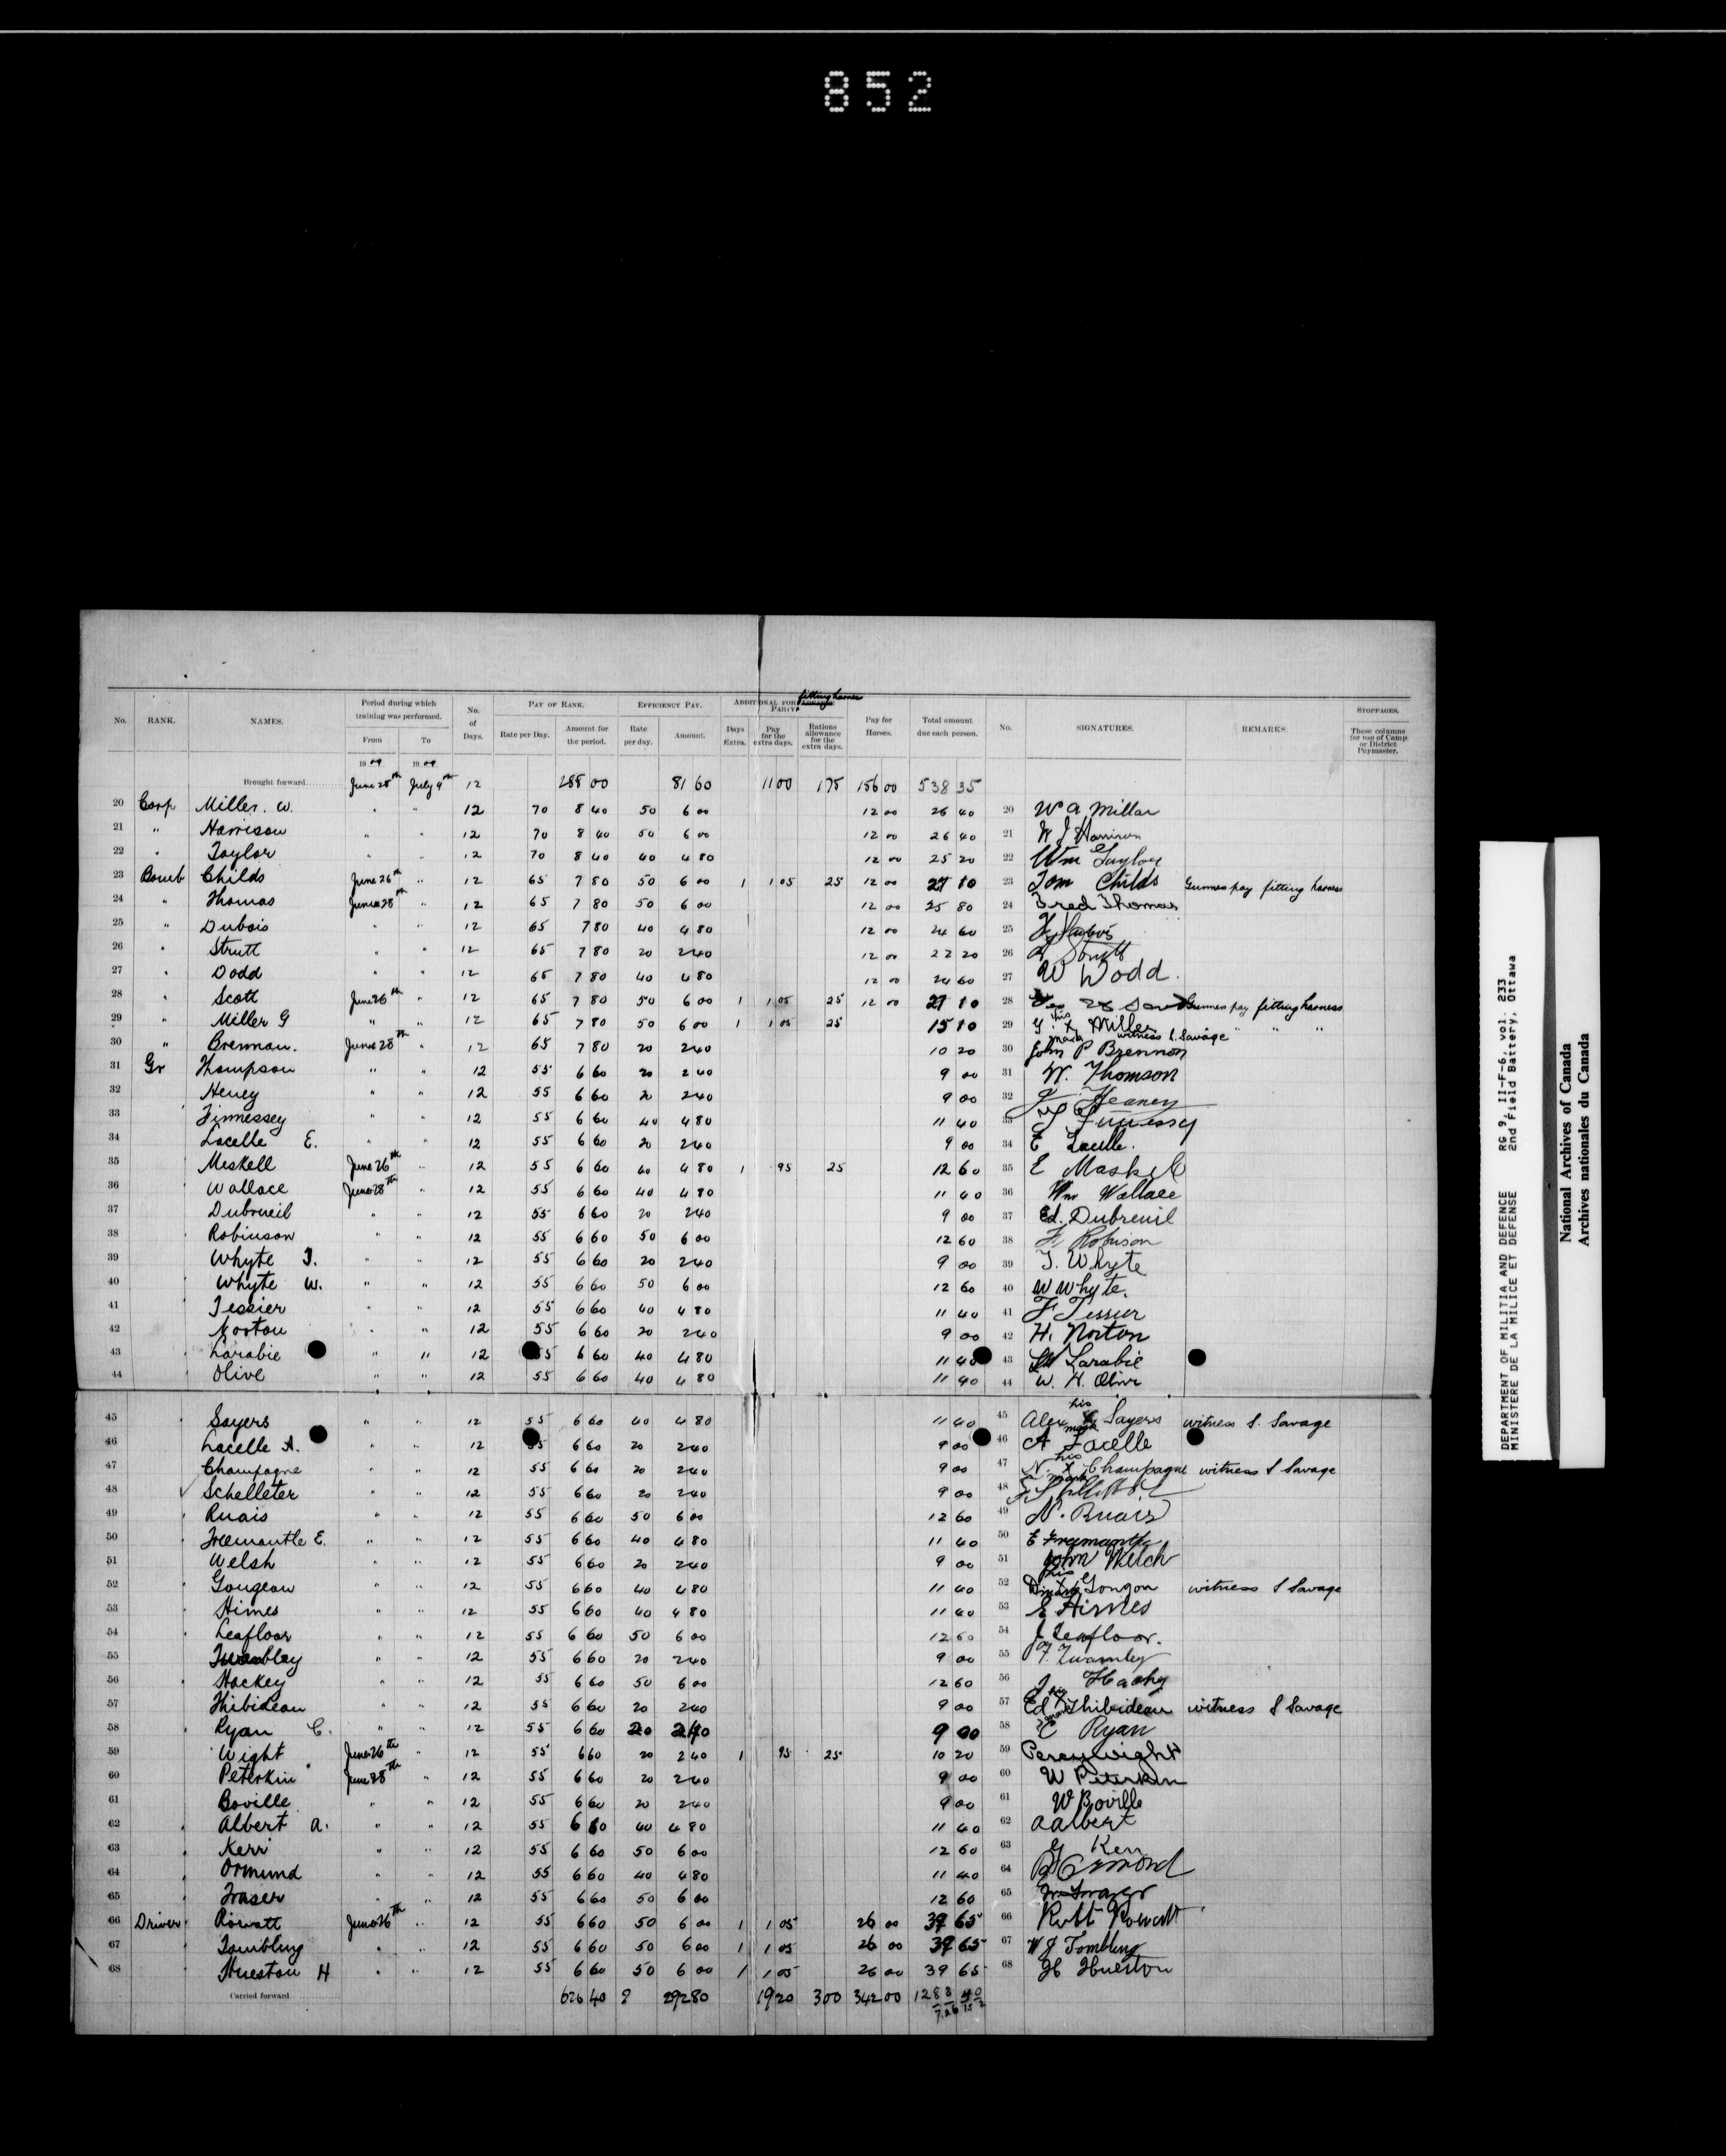 852
fitting harness
No. RANK. NAMES. Period during which training was performed. From To No. of Days. PAY OF RANK. Rate per Day. Amount for the period. EFFICIENCY PAY. Rate per day. Amount. ADDITIONAL FOR PARTY. Days Extra. Pay for the extra days. Rations allowance for the extra days. Pay for Horses. Total amount due each person. No. SIGNATURES. REMARKS STOPPAGES. These columns for use of Camp or District Paymaster.
1909 1909
Brought forward June 28th July 9th 12 288 00 81 60 11 00 1 75 156 00 538 35
20 Corp Miller. W. " " 12 70 8 40 50 6 00 12 00 26 40 20 Wm A. Millar
21 " Harrison " " 12 70 8 40 50 6 00 12 00 26 40 21 W J Harrison
22 " Taylor " " 12 70 8 40 40 4 80 12 00 25 20 22 Wm Taylor
23 Bomb Childs June 26th " 12 65 7 80 50 6 00 1 1 05 25 12 00 27 10 23 Tom Childs Gunners pay fitting harness
24 " Thomas June 28th " 12 65 7 80 50 6 00 12 00 25 80 24 Fred Thomas
25 " Dubois " 12 65 7 80 40 4 80 12 00 24 60 25
26 " Strutt " " 12 65 7 80 20 2 40 12 00 22 20 26 Strutt
27 " Dodd " " 12 65 7 80 40 4 80 12 00 24 60 27 W Dodd.
28 " Scott June 26th " 12 65 7 80 50 6 00 1 1 05 25 12 00 27 10 28 Gunners pay fitting harness
29 " Miller G " " 12 65 7 80 50 6 00 1 1 05 25 15 10 29 G. his x mark Miller witness S. Savage " " "
30 " Brennan. June 28th " 12 65 7 80 20 2 40 10 20 30 John P Brennon
31 Gr Thompson " " 12 55 6 60 20 2 40 9 00 31 W. Thomson
32 Heney " " 12 55 6 60 20 2 40 9 00 32 Heaney
33 Finnessey " " 12 55 6 60 40 4 80 11 40 33 Finnessy
34 Lacelle E. " " 12 55 6 60 20 2 40 9 00 34 E Lacelle.
35 Meskell June 26th " 12 55 6 60 40 4 80 1 95 25 12 60 35 E Maskel
36 Wallace June 28th " 12 55 6 60 40 4 80 11 40 36 Wm Wallace
37 Dubrueil " " 12 55 6 60 20 2 40 9 00 37 Ed. Dubreuil
38 Robinson " " 12 55 6 60 50 6 00 12 60 38 F Robinson
39 Whyte T. " " 12 55 6 60 20 2 40 9 00 39 T. Whyte
40 Whyte W. " " 12 55 6 60 50 6 00 12 60 40 W Whyte.
41 Tessier " " 12 55 6 60 40 4 80 11 40 41 F Tessier
42 Norton " " 12 55 6 60 20 2 40 9 00 42 H. Norton
43 Larabie " " 12 55 6 60 40 4 80 11 40 43 Larabie
44 Olive " " 12 55 6 60 40 4 80 11 40 44 W. H. Olive
45 Sayers " " 12 55 6 60 40 4 80 11 40 45 Alex his x mark Sayers witness S. Savage
46 Lacelle A. " " 12 55 6 60 20 2 40 9 00 46 A Lacelle
47 Champagne " " 12 55 6 60 20 2 40 9 00 47 N. his x mark Champagne witness S Savage
48 Schelleter " " 12 55 6 60 20 2 40 9 00 48
49 Ruais " " 12 55 6 60 50 6 00 12 60 49 N. Ruais
50 Freemantle E. " " 12 55 6 60 40 4 80 11 40 50 E Freemantle
51 Welsh " " 12 55 6 60 20 2 40 9 00 51 John Welch
52 Gougeon " " 12 55 6 60 40 4 80 11 40 52 his x mark Gongon witness S Savage
53 Himes " " 12 55 6 60 40 4 80 11 40 53 E Himes
54 Leafloor " " 12 55 6 60 50 6 00 12 60 54 J Leafloor.
55 Twambley " " 12 55 6 60 20 2 40 9 00 55 T. Twamley
56 Hackey " " 12 55 6 60 50 6 00 12 60 56 J Hachy
57 Thibideau " " 12 55 6 60 20 2 40 9 00 57 Ed his x mark Thibideau witness S Savage
58 Ryan C. " " 12 55 6 60 20 2 40 9 00 58 C Ryan
59 Wight June 26th " 12 55 6 60 20 2 40 1 95 25 10 20 59 Percy Wight
60 Peterkin June 28th " 12 55 6 60 20 2 40 9 00 60 W Peterkin
61 Boville " " 12 55 6 60 20 2 40 9 00 61 W Boville
62 Albert A. " " 12 55 6 60 40 4 80 11 40 62 A Albert
63 Kerr " " 12 55 6 60 50 6 00 12 60 63 G Kerr
64 Ormund " " 12 55 6 60 40 4 80 11 40 64 Ormond
65 Fraser " " 12 55 6 60 50 6 00 12 60 65 Fraser
66 Driver Rowatt June 26th " 12 55 6 60 50 6 00 1 1 05 26 00 39 65 66 Robt Rowatt
67 Tombling " " 12 55 6 60 50 6 00 1 1 05 26 00 39 65 67 W J Tombling
68 Hueston H " " 12 55 6 60 50 6 00 1 1 05 26 00 39 65 68 H Hueston
Carried forward 626 40 292 80 19 20 3 00 342 00 1283 40
DEPARTMENT OF MILITIA AND DEFENCE RG 9, II-F-6, vol. 233
MINISTERE DE LA MILICE ET DEFENSE 2nd Field Battery, Ottawa
National Archives of Canada
Archives nationales du Canada